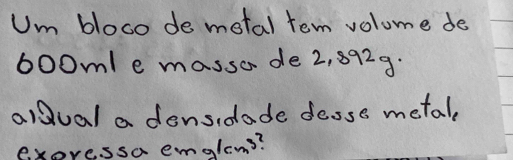 Um bloco de metal tem volume de
600ml e massa de 2,892g.
a) Qual a densidade desse metal,
expressa em g/cm³?